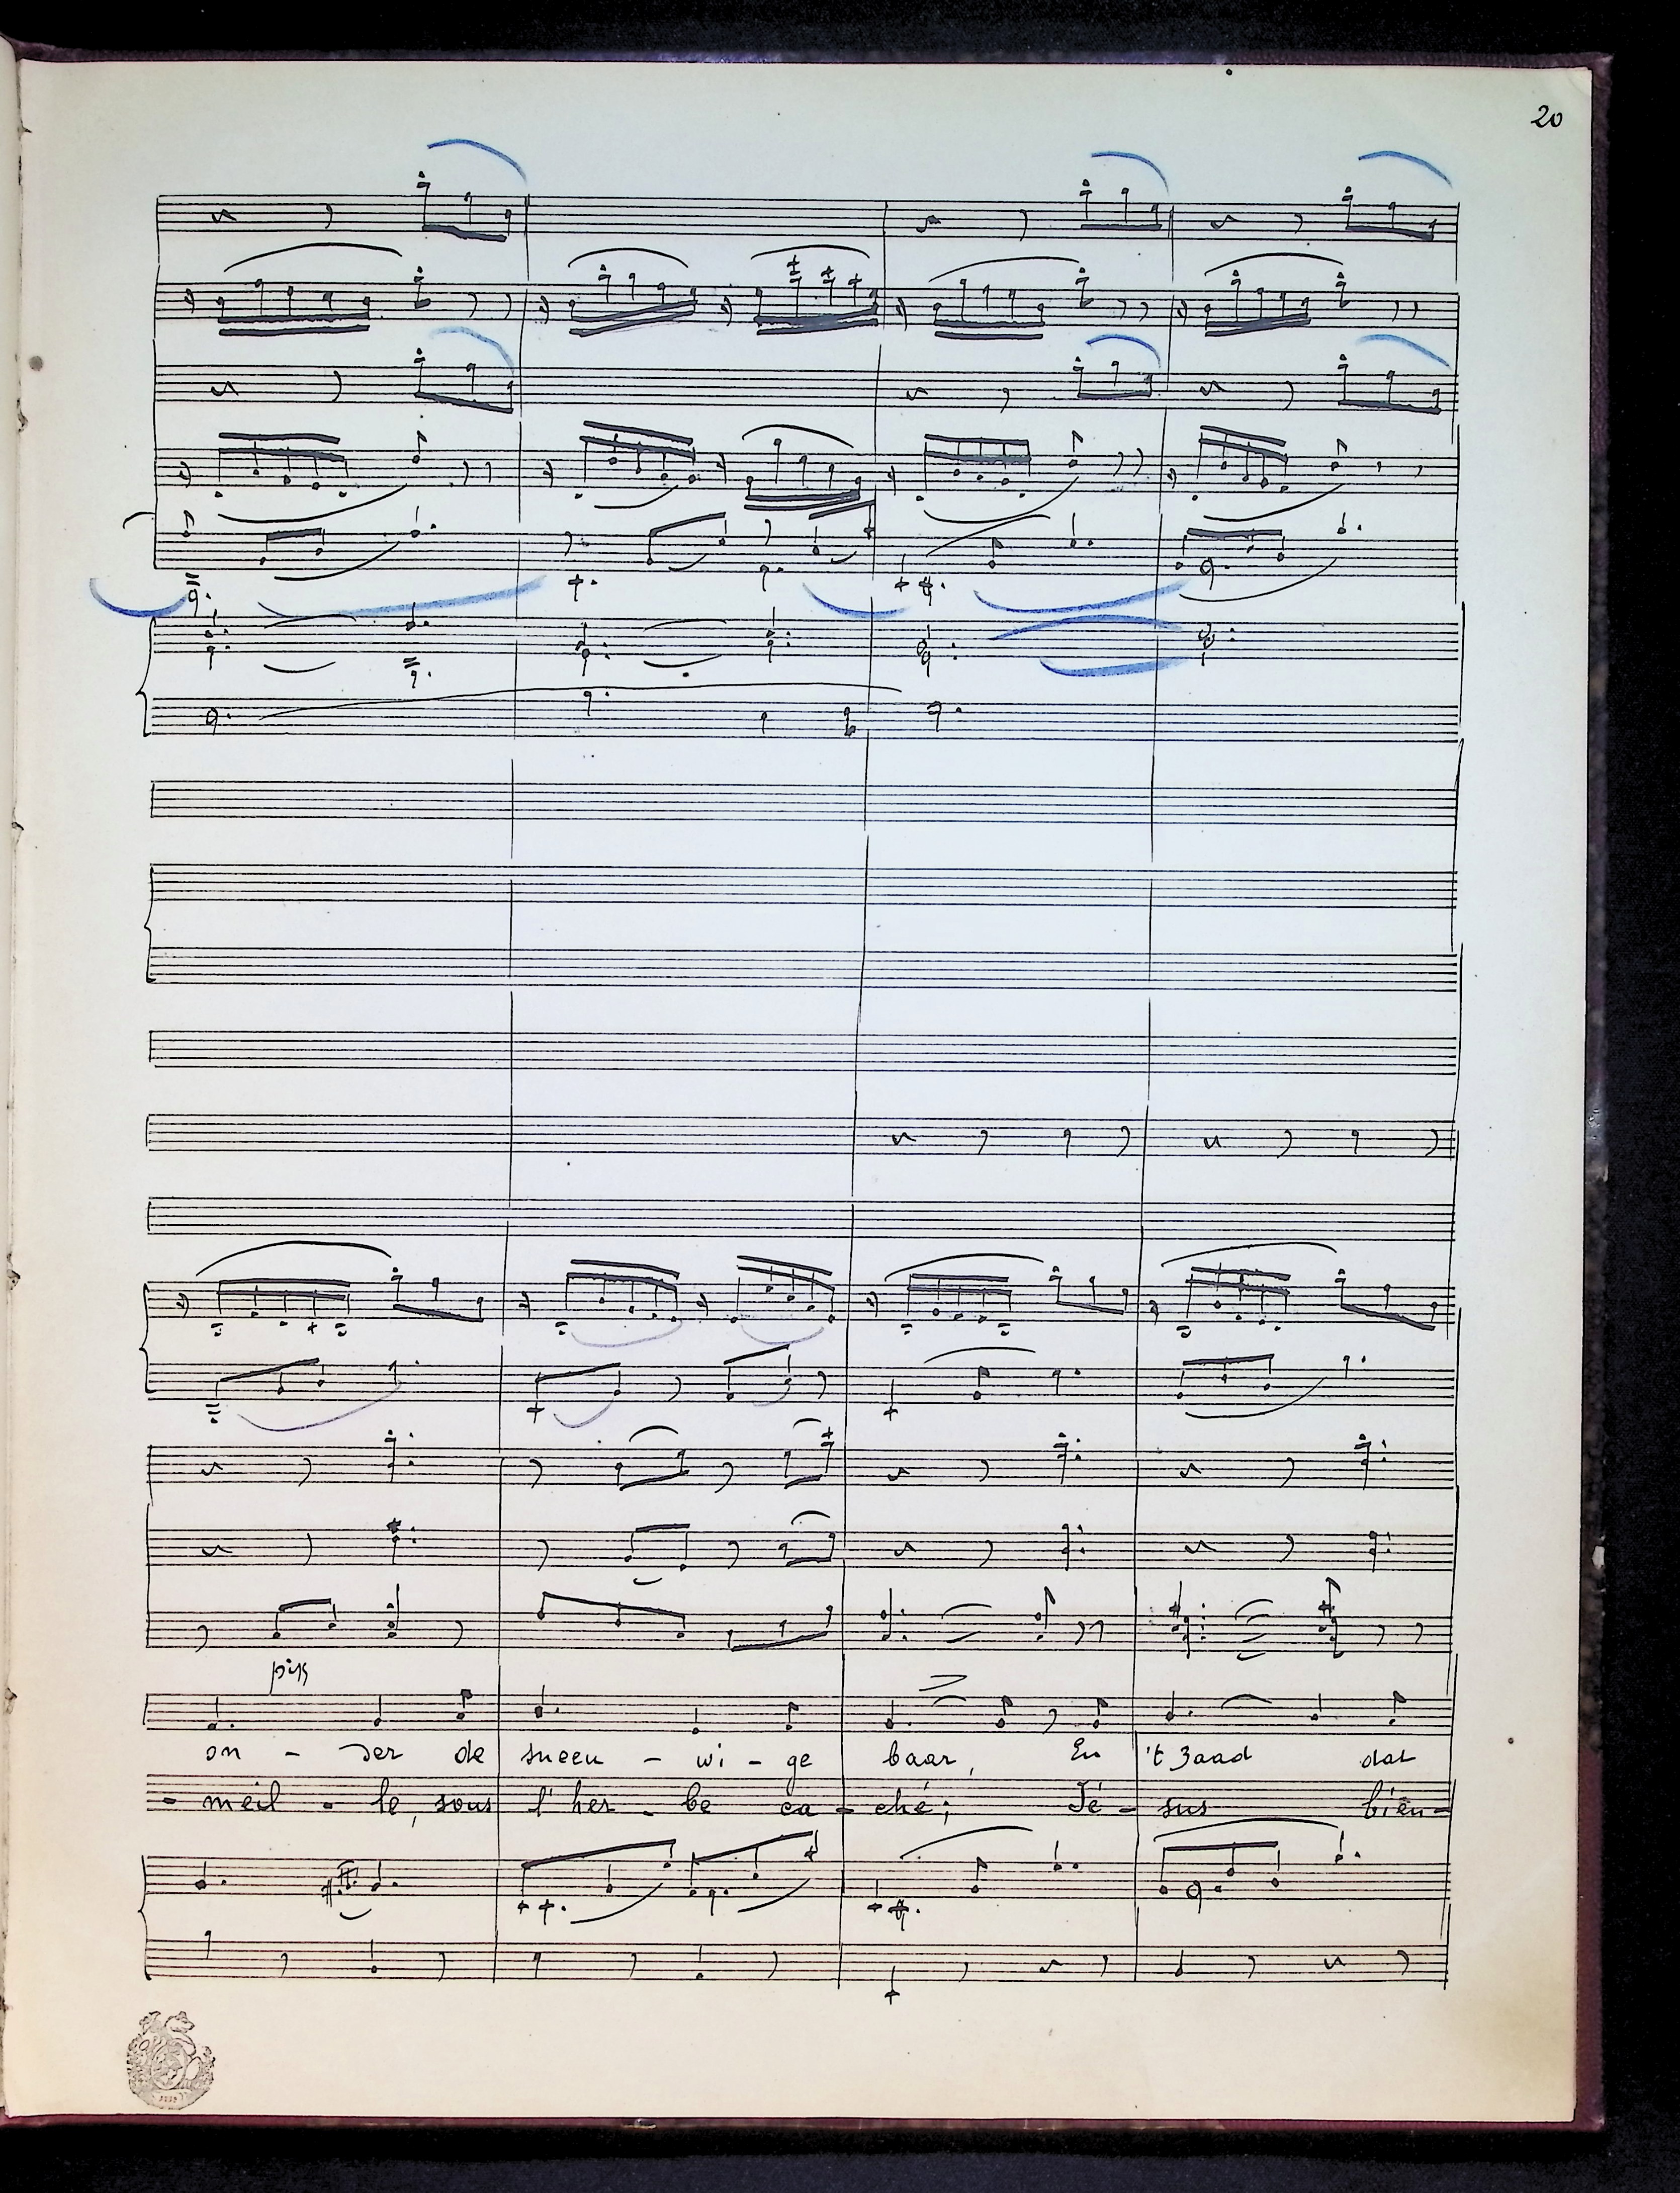 20
on - der de sneeu - wi - ge baar, En 't zaad dat
- meil - le, sous l'her - be ca - ché; Jé - sus bien -